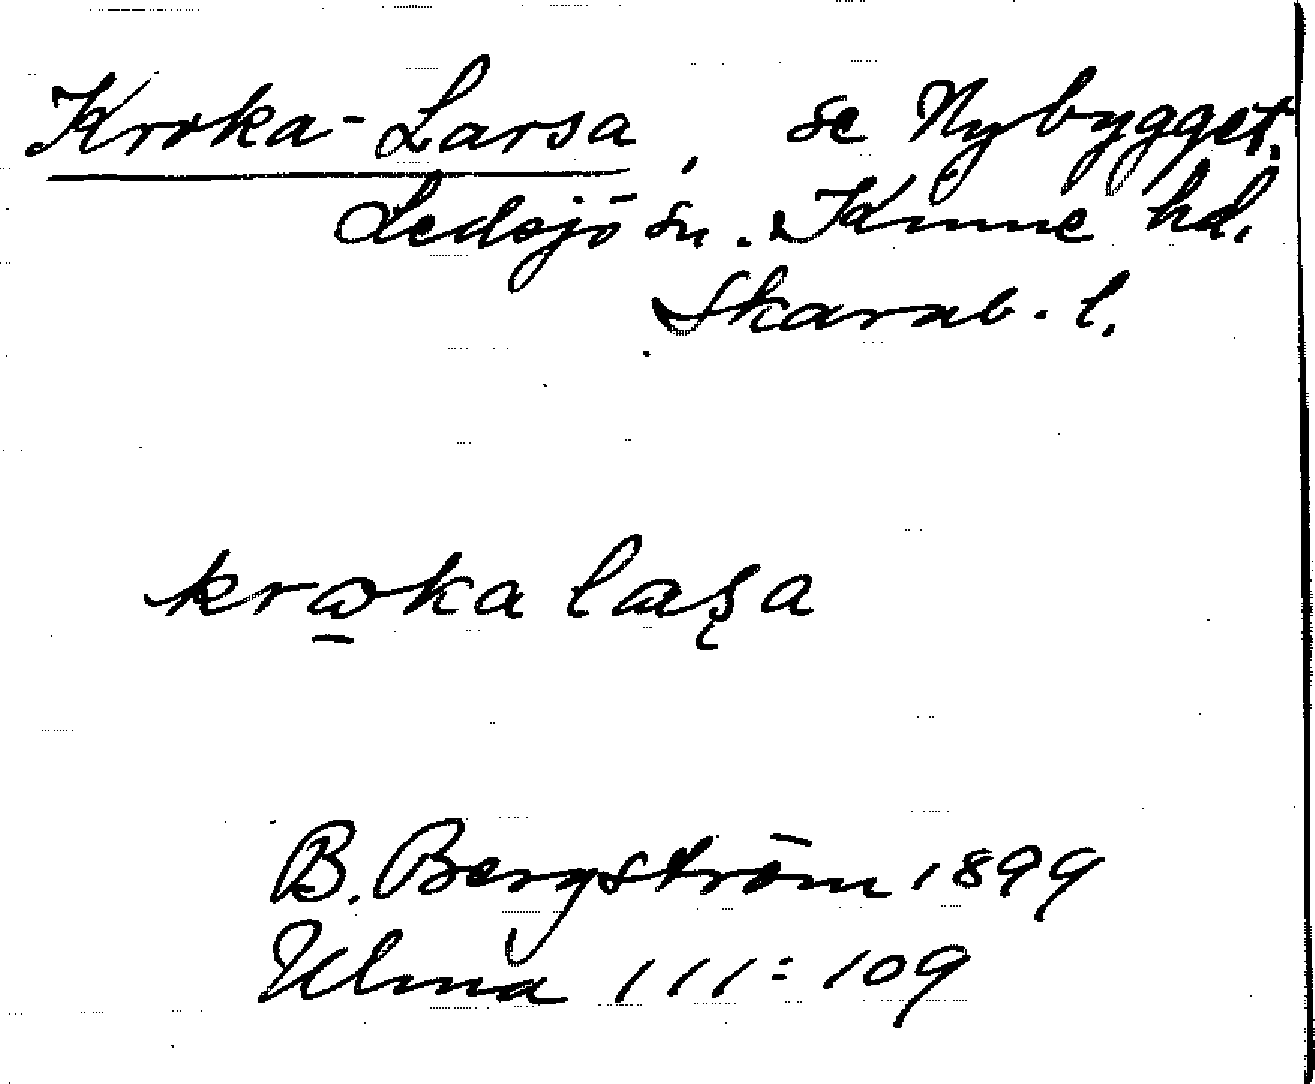 Kroka-Larsa, se Nybygget.
Ledsjö sn. Kinne hd.
Skarab. l.
krωka laʂa
B. Bergström 1899
Ulma 111:109